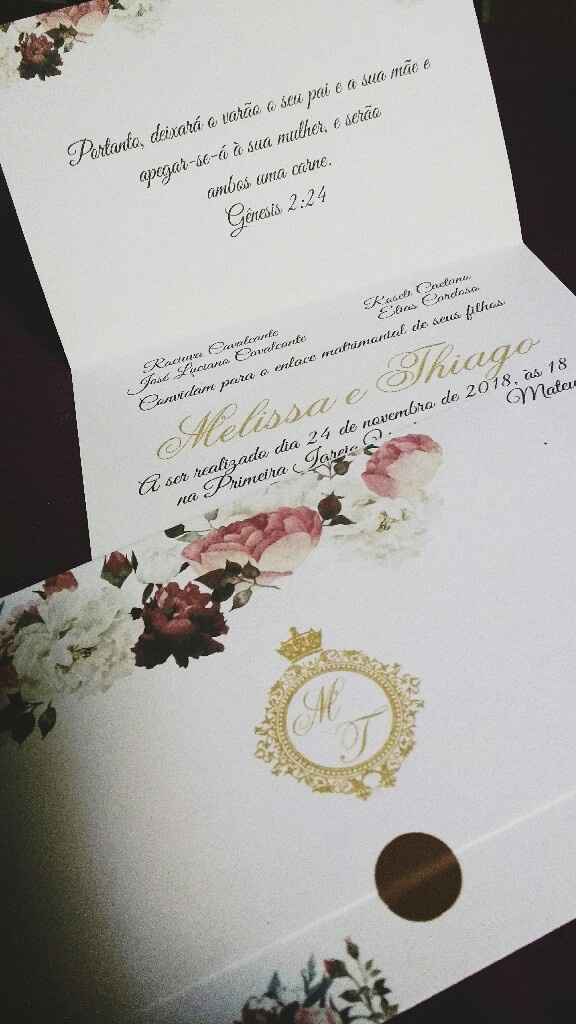 Portanto, deixará o varão o seu pai e a sua mãe e
apegar-se-á à sua mulher, e serão
ambos uma carne.
Gênesis 2:24
Cavalcante
José Luciano Cavalcante
Roseli Caetano
Elias Cardoso
Convidam para o enlace matrimonial de seus filhos
Melissa e Thiago
A ser realizado dia 24 de novembro de 2018, às 18
na Primeira Igreja
M T